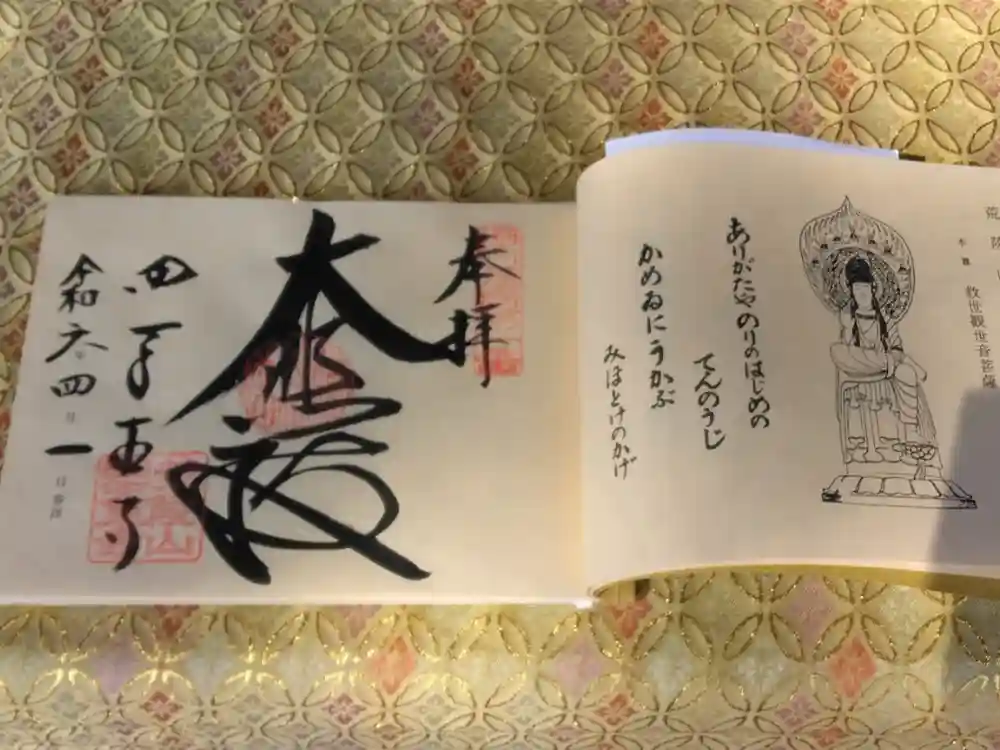 荒陵
本尊 救世觀世音菩薩
ありがたや のりのはじめの
てんのうじ
かめゐにうかぶ
みほとけのかげ
奉拝
大悲殿
四天王寺
令和六年四月一日